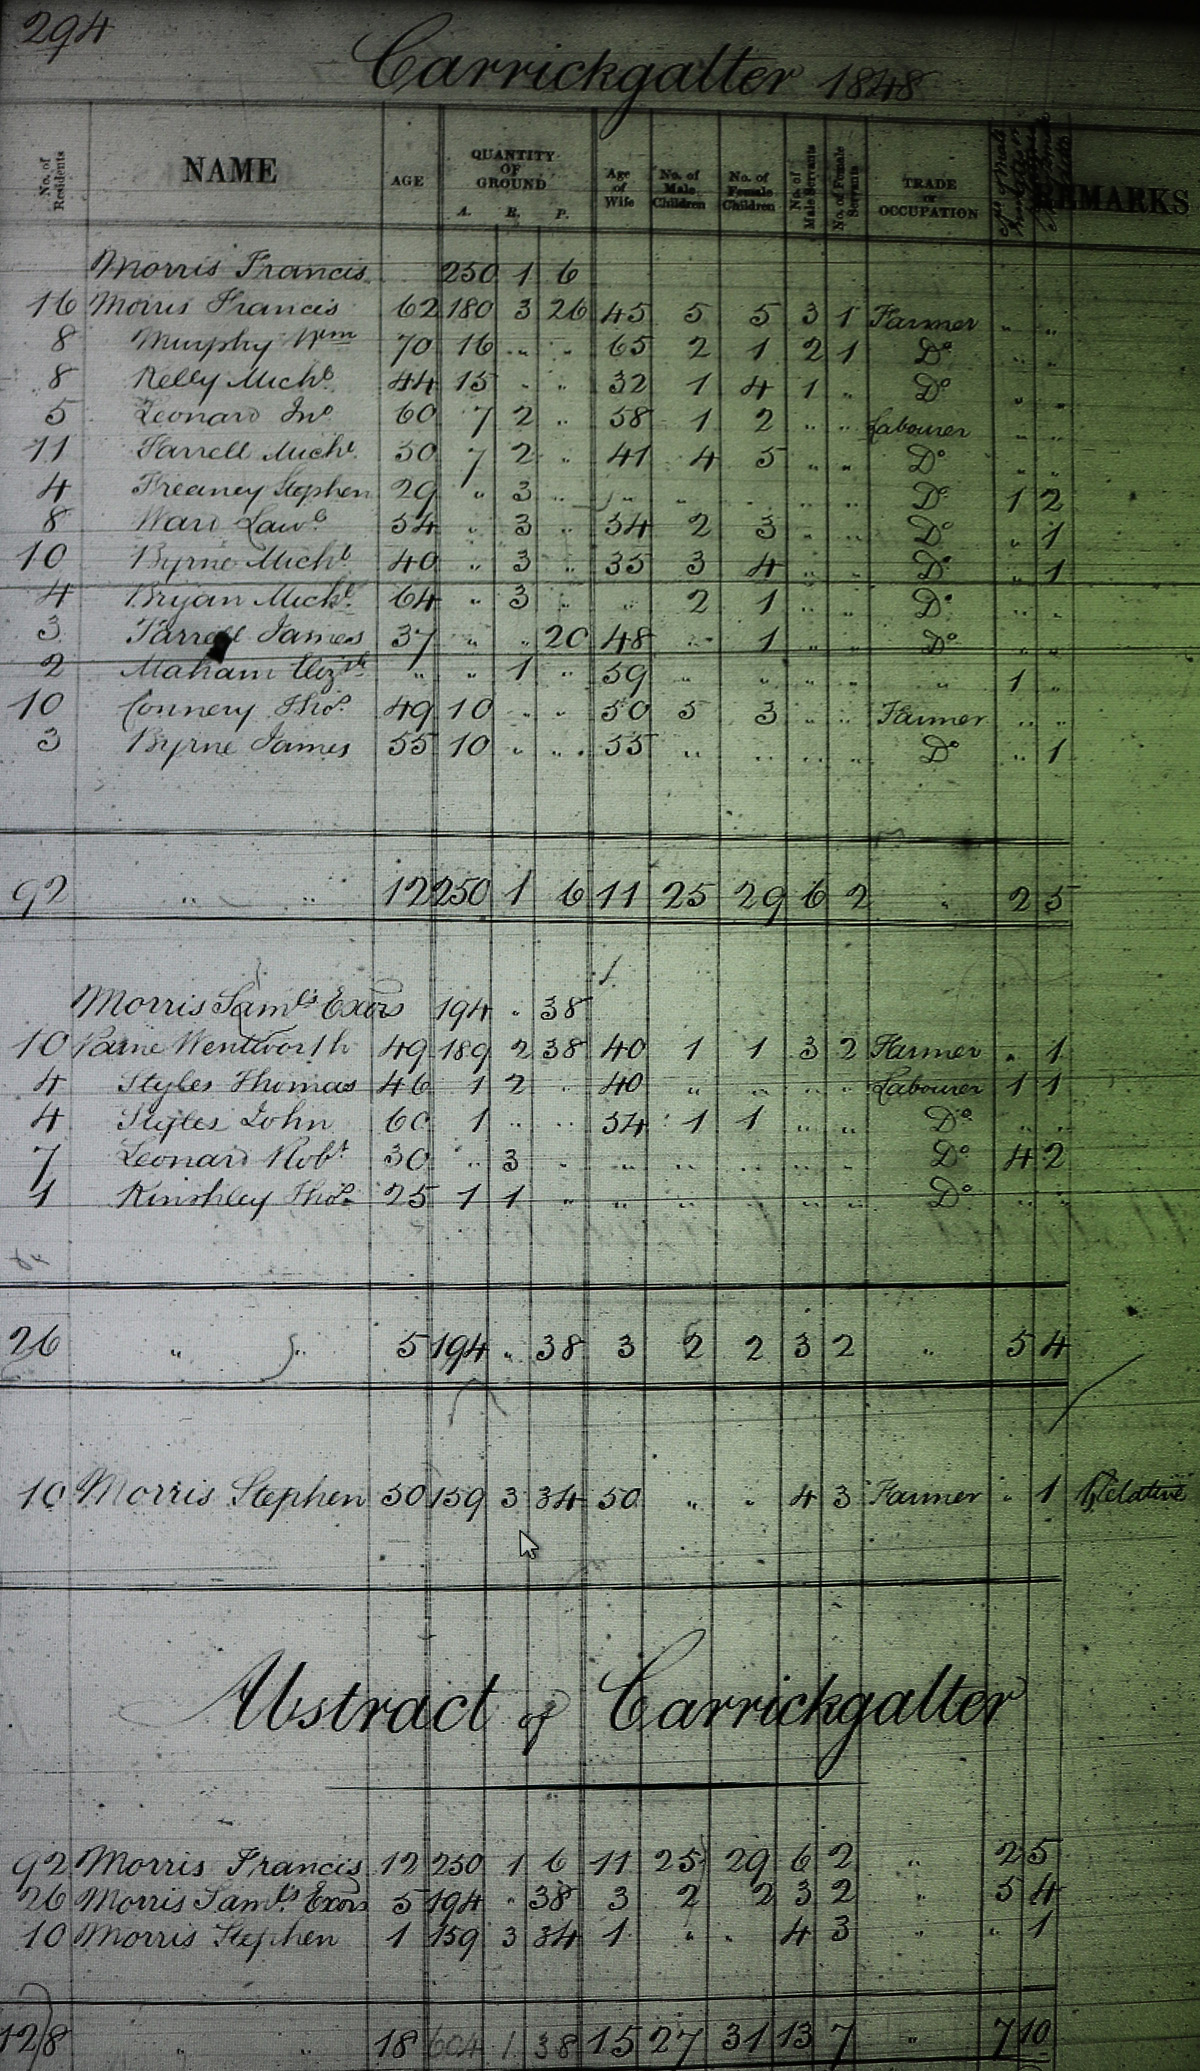 294
Carrickgalter 1848
No. of Residents NAME AGE QUANTITY OF GROUND A. R. P. Age of Wife No. of Male Children No. of Female Children No. of Male Servants No. of Female Servants TRADE or OCCUPATION REMARKS
Morris Francis 250 1 6
16 Morris Francis 62 180 3 26 45 5 5 3 1 Farmer " "
8 Murphy Wm 70 16 " " 65 2 1 2 1 Do " "
8 Kelly Michl 44 15 " " 32 1 4 1 " Do " "
5 Leonard Jno 60 7 2 " 58 1 2 " " Labourer " "
11 Farrell Michl 50 7 2 " 41 4 5 " " Do " "
4 Freaney Stephen 29 " 3 " " " " " " Do 1 2
8 Ward Lawce 54 " 3 " 34 2 3 " " Do " 1
10 Byrne Michl 40 " 3 " 35 3 4 " " Do " 1
4 Bryan Michl 64 " 3 " " 2 1 " " Do " "
3 Farrell James 37 " " 20 48 " 1 " " Do " "
2 Maham Elizth " " 1 " 59 " " " " " 1 "
10 Connery Thos 49 10 " " 50 5 3 " " Farmer " "
3 Byrne James 55 10 " " 55 " " " " Do " 1
92 " " 12 250 1 6 11 25 29 6 2 " 2 5
Morris Samls Exors 194 " 38
10 Paine Wentworth 49 189 2 38 40 1 1 3 2 Farmer " 1
4 Styles Thomas 46 1 2 " 40 " " " " Labourer 1 1
4 Styles John 60 1 " " 54 1 1 " " Do " "
7 Leonard Robt 30 " 3 " " " " " " Do 4 2
1 Kinshley Thos 25 1 1 " " " " " " Do " "
26 " " 5 194 " 38 3 2 2 3 2 " 5 4
10 Morris Stephen 50 159 3 34 50 " " 4 3 Farmer " 1 Relative
Abstract of Carrickgalter
92 Morris Francis 12 250 1 6 11 25 29 6 2 " 2 5
26 Morris Samls Exors 5 194 " 38 3 2 2 3 2 " 5 4
10 Morris Stephen 1 159 3 34 1 " " 4 3 " " 1
128 " " 18 604 1 38 15 27 31 13 7 " 7 10